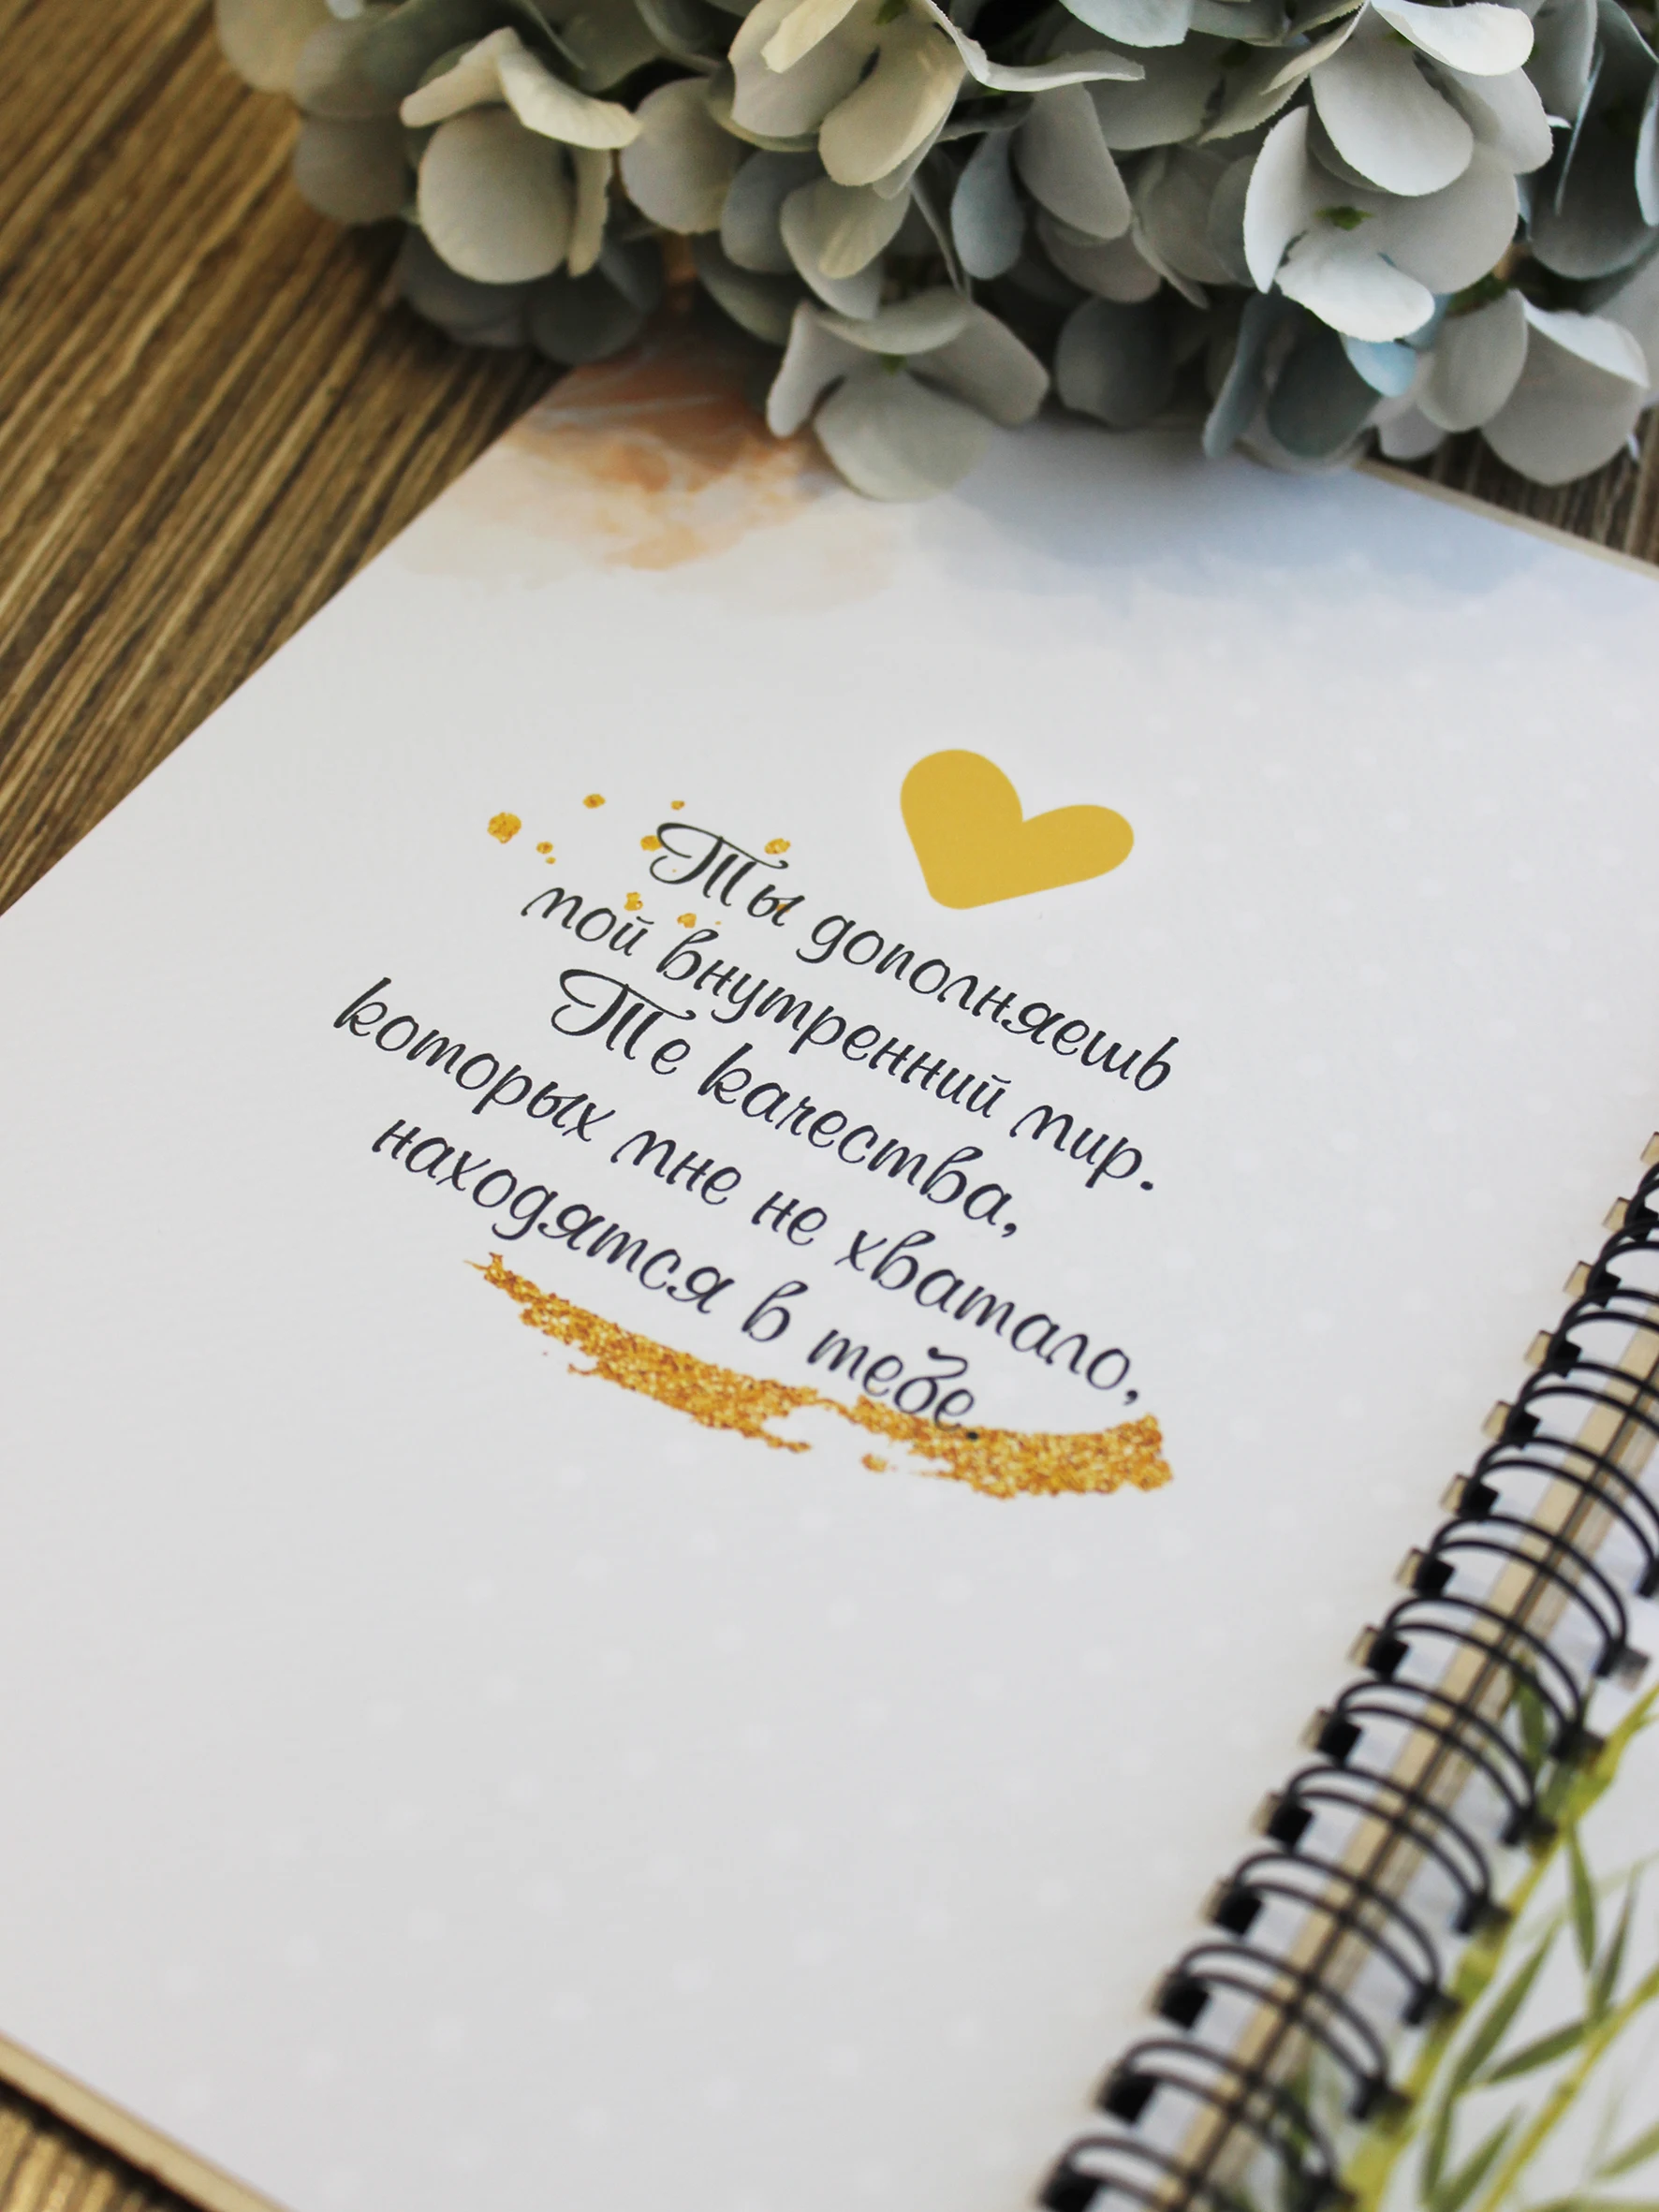 Ты дополняешь
мой внутренний мир.
Те качества,
которых мне не хватало,
находятся в тебе.